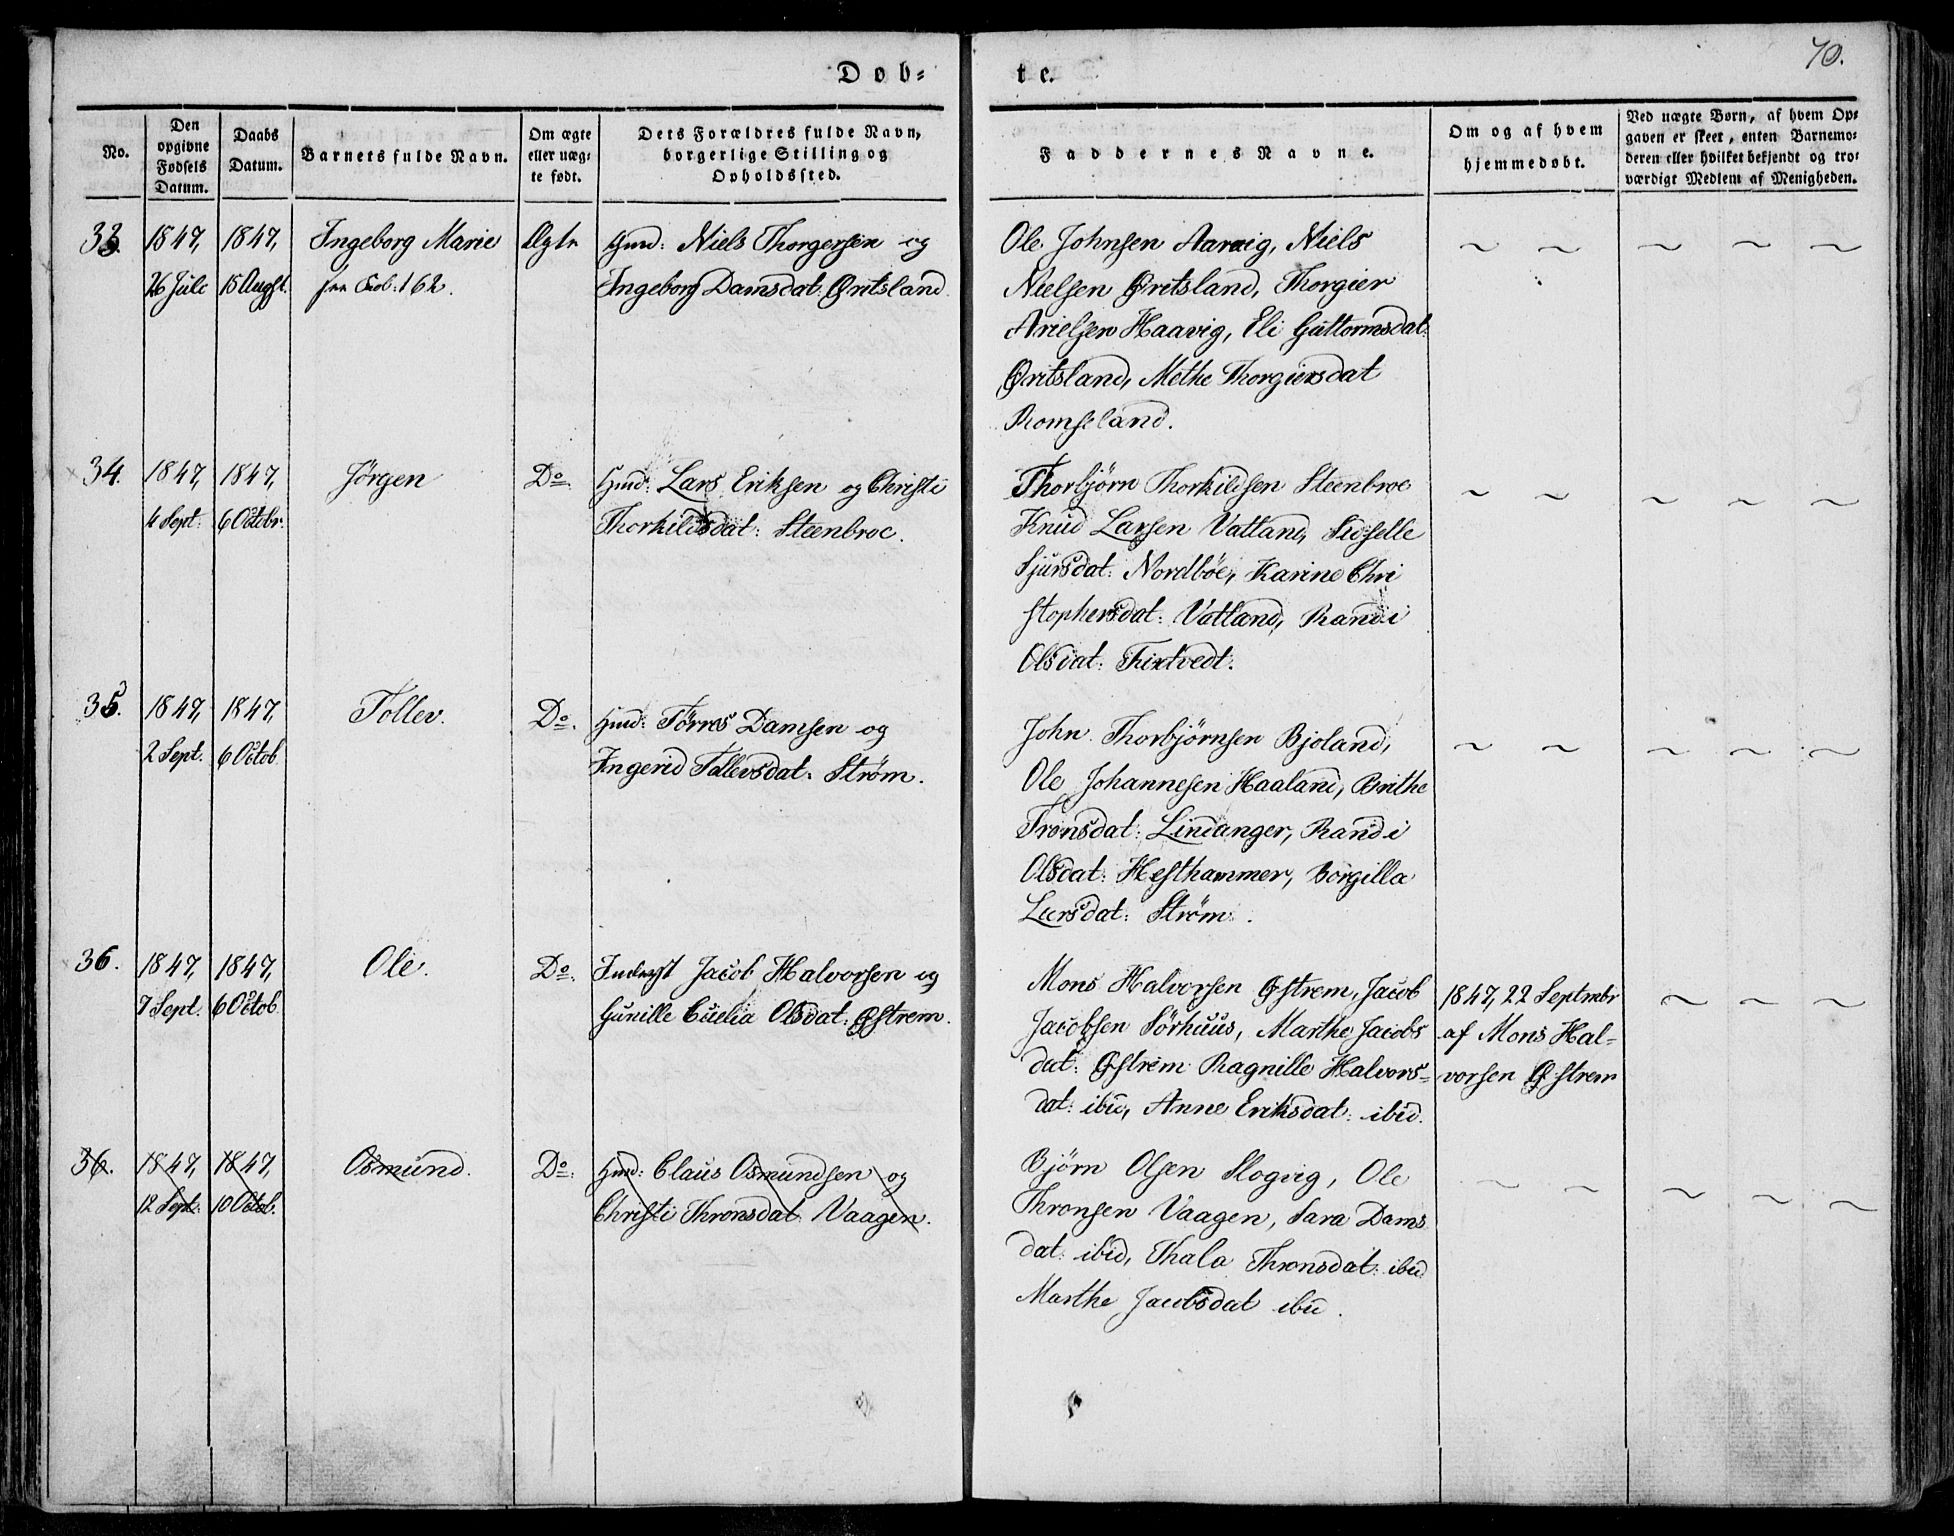 Døb-
te.
70.
No.
Den opgivne Fødsels Datum.
Daabs Datum.
Barnets fulde Navn.
Om ægte eller uæg-te født.
Dets Forældres fulde Navn, borgerlige Stilling og Opholdssted.
Faddernes Navne.
Om og af hvem hjemmedøbt.
Ved uægte Børn, af hvem Op-gaven er skeet, enten Barnemo-deren eller hvilket bekjendt og tro-værdigt Medlem af Menigheden.
33. 1847, 1847, Ingeborg Marie Ægte Gmd: Niels Thorgersen og
26 Juli 15 Augst. 162. Ingeborg Damsdat: Øritsland.
Ole Johnsen Aarvig, Niels
Nielsen Øritsland, Thorgier
Arielsen Haavig, Eli Guttormsdat:
Øritsland, Methe Thorgiersdat
Romseland.
34. 1847, 1847, Jörgen Do. Hmd: Lars Eriksen og Christi
4 Sept: 6 Octobr. Thorkildsdat: Steenbroe.
Thorbjørn Thorkildsen Steenbroe
Knud Larsen Vatland, Sidselle
Sjursdat: Nordböe, Karine Chri
stophersdat: Vatland, Randi
Olsdat: Tixtvedt.
35. 1847, 1847, Tollev. Do. Hmd: Törres Damsen og
2 Sept. 6 Octob. Ingerid Tollevsdat: Strøm.
John Thorbjørnsen Bjoland,
Ole Johannesen Haaland, Brithe
Tronsdat: Lindanger, Randi
Olsdat: Hesthammer, Borgilla
Larsdat: Strøm.
36. 1847, 1847, Ole. Do. Inderst Jacob Halvorsen og
7 Sept. 6 Octob. Gunille Cicelia Olsdat: Østrem.
Mons Halvorsen Østrem, Jacob
Jacobsen Sörhuus, Marthe Jacobs
dat: Østrem Ragnille Halvors-
dat: ibid, Anne Eriksdat: ibid.
1847, 22 Septmbr
af Mons Hal-
vorsen Østrem
36. 1847, 1847, Osmund. Do. Hmd: Claus Osmundsen og
12 Sept. 10 Octob. Christi Thronsdat: Vaagen.
Bjørn Olsen Slogvig, Ole
Thronsen Vaagen, Sara Dams
dat: ibid, Thala Thronsdat: ibid
Marthe Jacobsdat ibid.